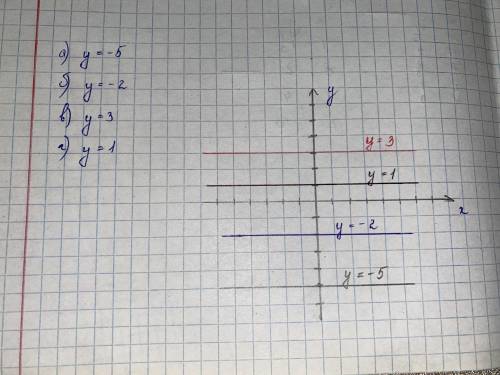 а) y = -5
б) y = -2
в) y = 3
г) y = 1
y
y = 3
y = 1
x
y = -2
y = -5